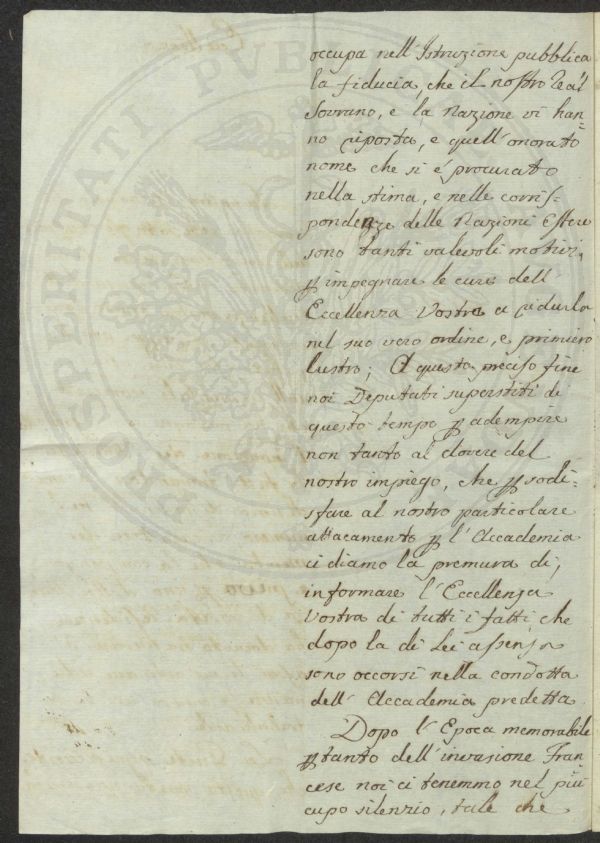 occupa nell'Istruzione pubblica
la fiducia, che il nostro Real
Sovrano, e la Nazione vi han=
no riposta, e quell'onorato
nome che si é procurato
nella stima, e nelle corris=
pondenze delle Nazioni Estere
sono tanti valevoli motivi,
ꝑ impegnare le cure dell
Eccellenza Vostra a ridurla
nel suo vero ordine, e primiero
lustro; A questo preciso fine
noi Deputati superstiti di
questo tempo ꝑ adempire
non tanto al dovere del
nostro impiego, che ꝑ sodi=
sfare al nostro particolare
attacamento ꝑ l'Accademia
ci diamo la premura di,
informare l'Eccellenza
Vostra di tutti i fatti che
dopo la di Lei assenza
sono occorsi nella condotta
dell'Accademia predetta
Dopo l'Epoca memorabile
ꝑtanto dell'invasione Fran
cese noi ci tenemmo nel più
cupo silenzio, tale che
PROSPERITATI PUBLICAE